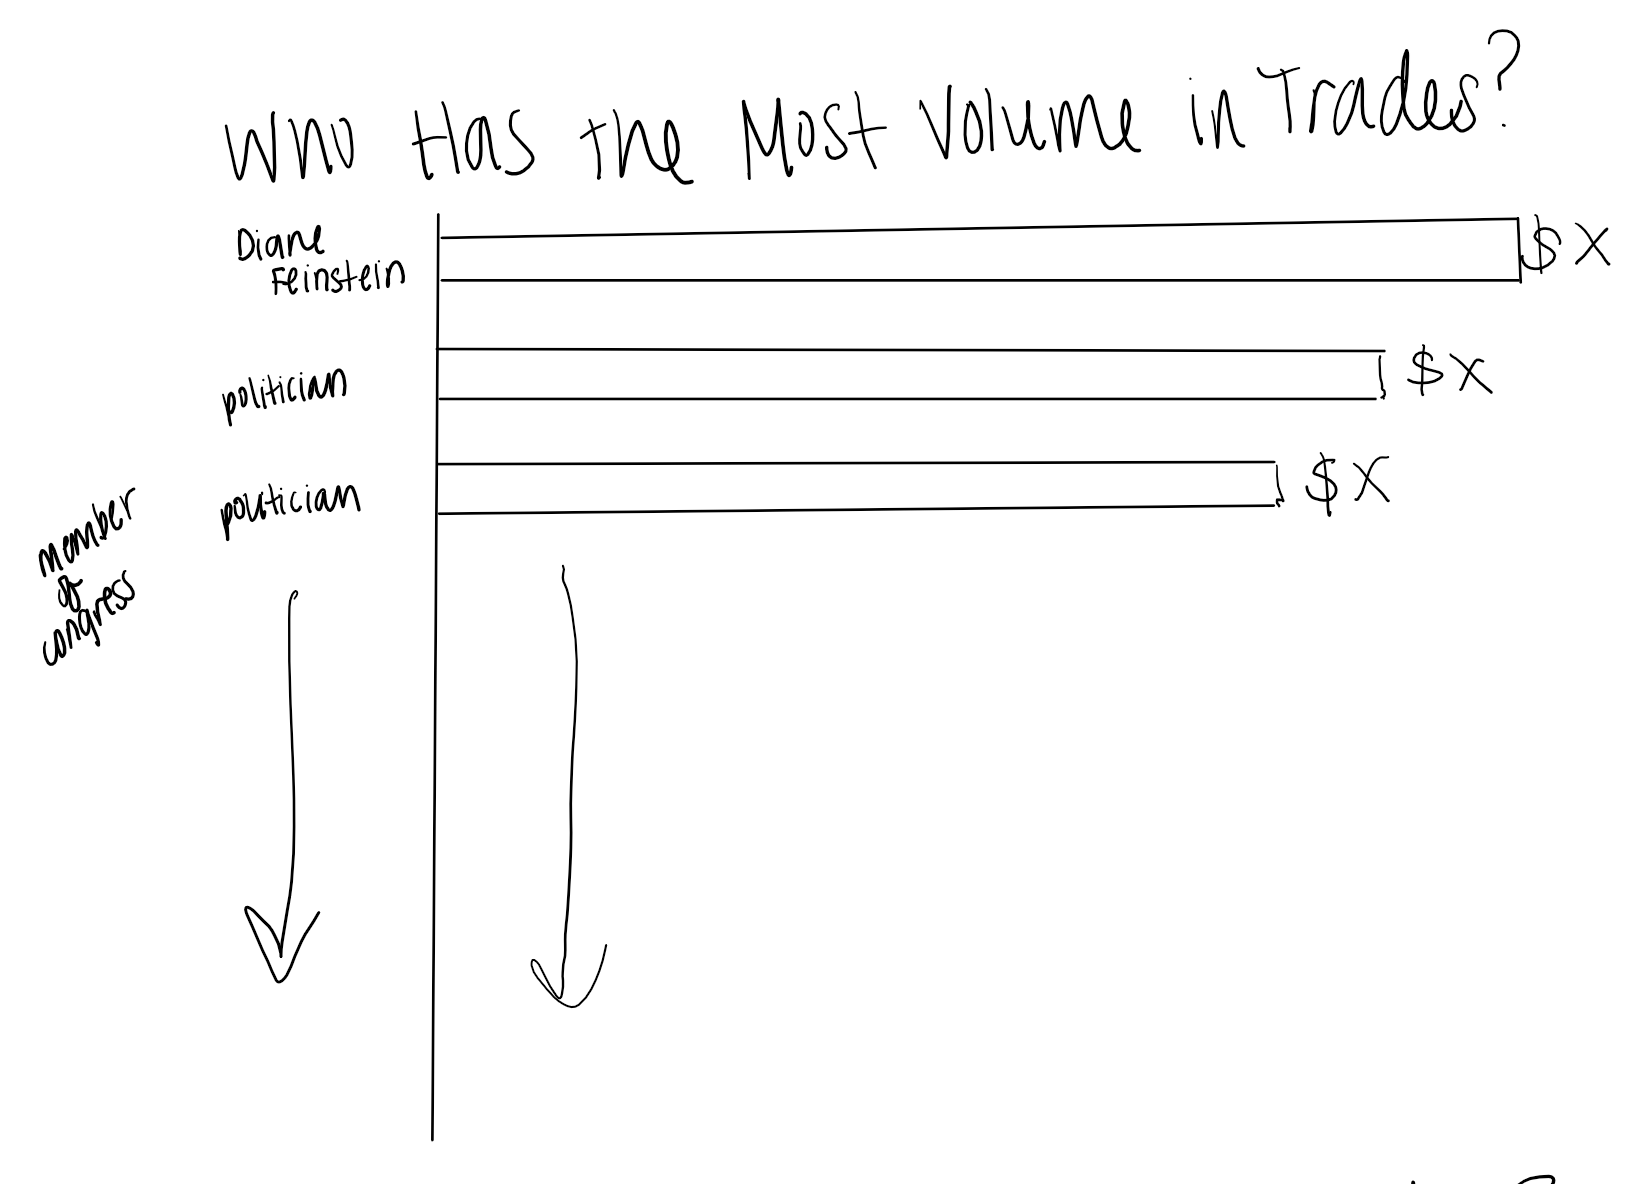 Who Has the Most Volume in Trades?
Diane
Feinstein
$ X
politician
$ X
politician
$ X
member
of
congress